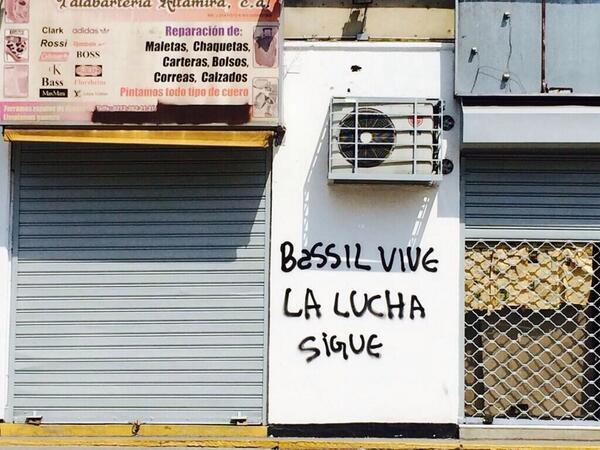 Talabartería Altamira, c.a,
Clark adidas
Rossi
BOSS
CK
Bass Florsheim
MaxMara
Reparación de:
Maletas, Chaquetas,
Carteras, Bolsos,
Correas, Calzados
Pintamos todo tipo de cuero
BaSSIL VIVE
LA LUCHA
SiGUE